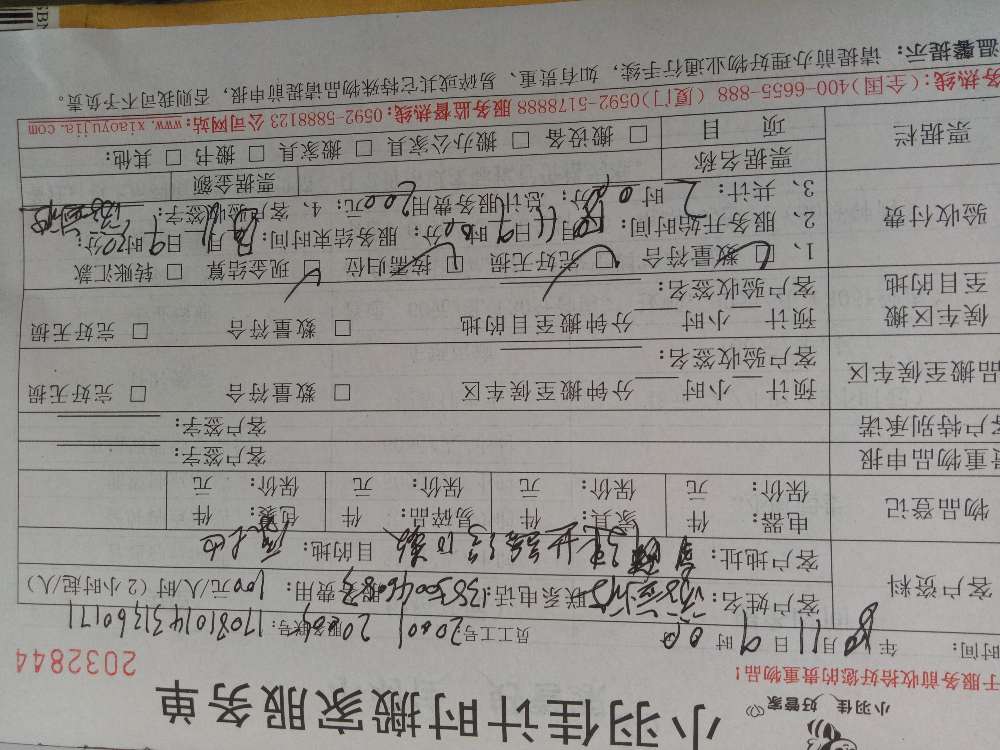 小羽佳计时搬家服务单
小羽佳 好管家
于服务前收拾好您的贵重物品！
2032844
时间： 年 11月 日 9时 00 员工工号： 20001 20009 服务联号： 1708101431260171
客户资料 客户姓名： 联系电话： 服务费用： 100元/人/时（2小时起/人）
客户地址： 目的地：
物品登记 电器： 件 家具： 件 易碎品： 件 包裹： 件
保价： 元 保价： 元 保价： 元 保价： 元
贵重物品申报 客户签字：
客户特别承诺 客户签字：
品搬至候车区 预计 小时 分钟搬至候车区 □ 数量符合 □ 完好无损
客户验收签名：
候车区搬至目的地 预计 小时 分钟搬至目的地 □ 数量符合 □ 完好无损
客户验收签名：
验收付费 1、 □ 数量符合 □ 完好无损 □ 按需归位 □ 现金结算 □ 转账汇款
2、服务开始时间： 月 日 9时 00分； 服务结束时间： 月 日 时 分；
3、共计： 2时 00分； 总计服务费用 200元； 4、客户验收签字：
票据栏 票据名称 票据金额
项 目 □ 搬设备 □ 搬办公家具 □ 搬家具 □ 搬书 □ 其他：
务热线：(全国)400-6655-888 (厦门)0592-5178888 服务监督热线：0592-5888123 公司网站：www.xiaoyujia.com
温馨提示： 请提前办理好物业通行手续，如有贵重、易碎或其它特殊物品请提前申报，否则我司不予负责。